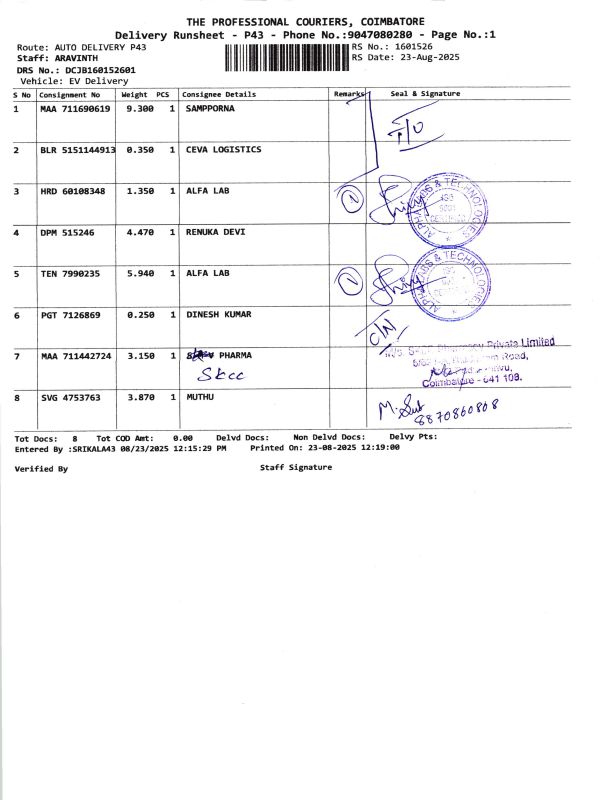 THE PROFESSIONAL COURIERS, COIMBATORE
Delivery Runsheet - P43 - Phone No.:9047080280 - Page No.:1
Route: AUTO DELIVERY P43 RS No.: 1601526
Staff: ARAVINTH RS Date: 23-Aug-2025
DRS No.: DCJB160152601
Vehicle: EV Delivery
S No Consignment No Weight PCS Consignee Details Remarks Seal & Signature
1 MAA 711690619 9.300 1 SAMPPORNA
T/O
2 BLR 5151144913 0.350 1 CEVA LOGISTICS
3 HRD 60108348 1.350 1 ALFA LAB
ALPHA LABS & TECHNOLOGIES
ISO 9001 CERTIFIED
4 DPM 515246 4.470 1 RENUKA DEVI
5 TEN 7990235 5.940 1 ALFA LAB
ALPHA LABS & TECHNOLOGIES
ISO
6 PGT 7126869 0.250 1 DINESH KUMAR
C/N
7 MAA 711442724 3.150 1 PHARMA
Skcc
Private Limited
Road,
Coimbatore - 641 108.
8 SVG 4753763 3.870 1 MUTHU
8870860808
Tot Docs: 8 Tot COD Amt: 0.00 Delvd Docs: Non Delvd Docs: Delvy Pts:
Entered By :SRIKALA43 08/23/2025 12:15:29 PM Printed On: 23-08-2025 12:19:00
Verified By Staff Signature